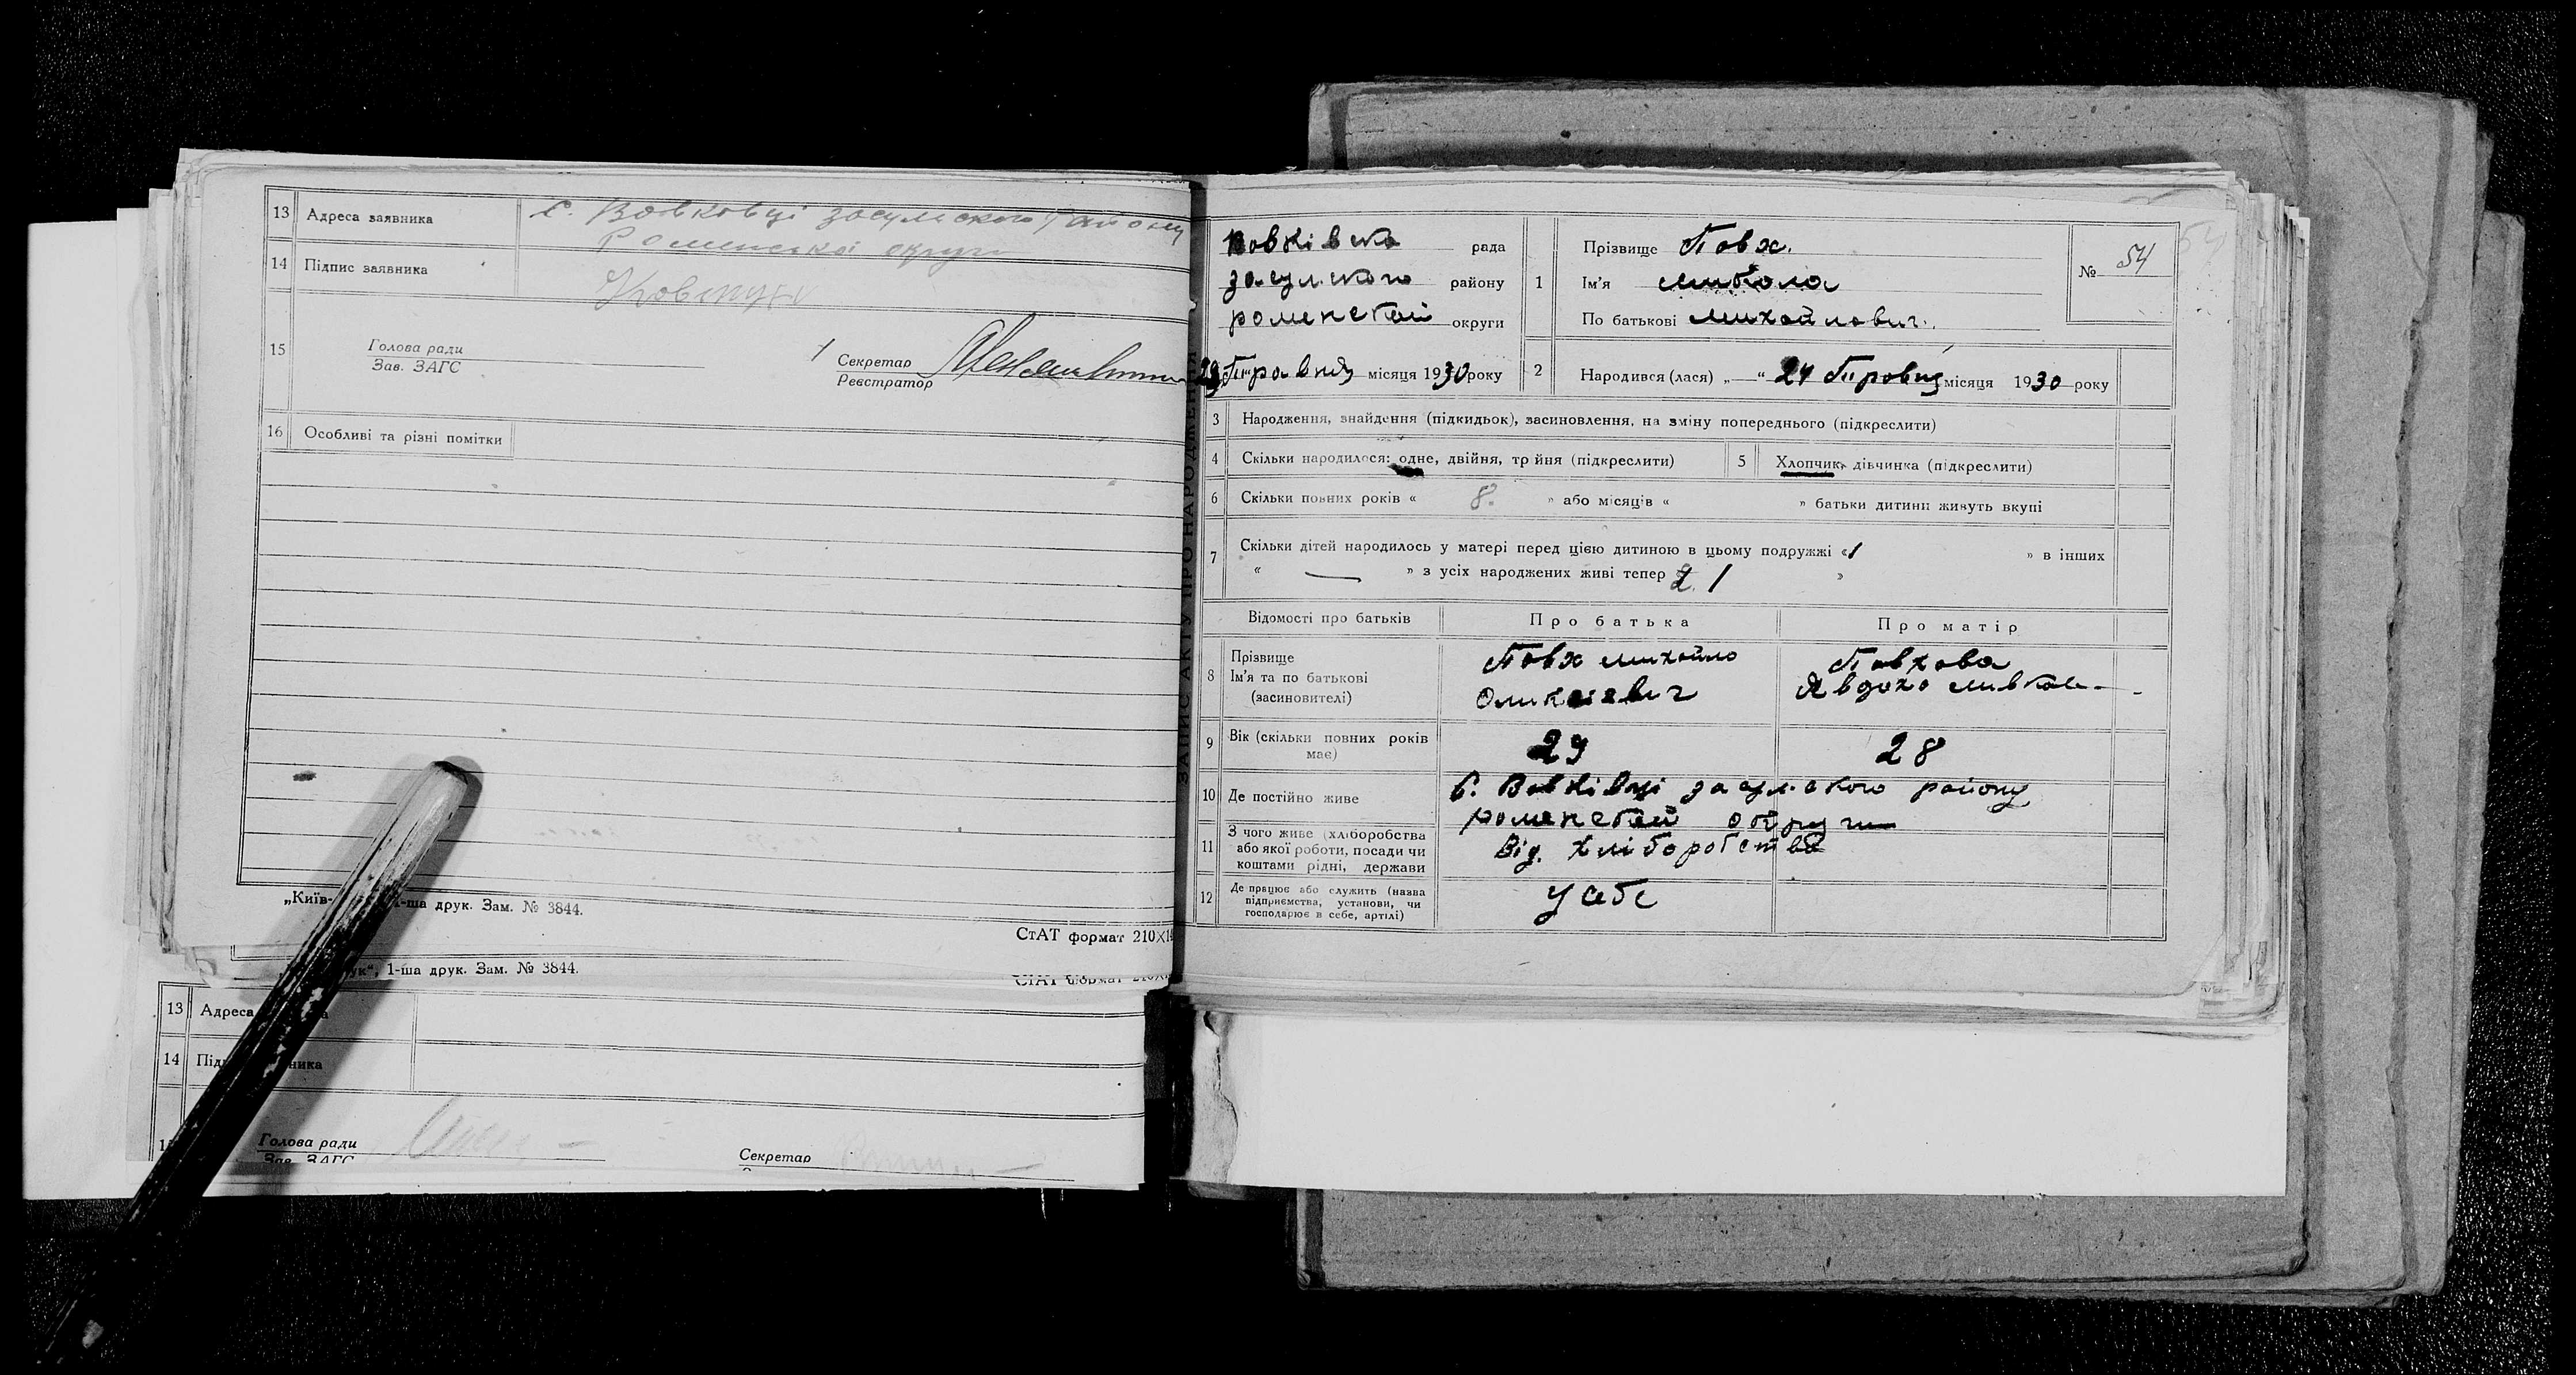 13 Адреса заявника с. Вовковці засулского району
Роменської округи
14 Підпис заявника
15 Голова ради
Зав. ЗАГС
Секретар
Реєстратор
16 Особливі та різні помітки
„Київ- 1-ша друк. Зам. № 3844.
СтАТ формат 210×1
ук“, 1-ша друк. Зам. № 3844.
13 Адреса
14
Голова ради
Зав. ЗАГС
Секретар
ЗАПИС АКТУ ПРО НАРОДЖЕННЯ
Вовківська рада
засулского району
роменської округи
29 Травня місяця 1930 року
1 Прізвище Повх.
Ім'я Микола
По батькові Михайлович.
№ 54
54
2 Народився (лася) „—“ 24 Травня місяця 1930 року
3 Народження, знайдення (підкидьок), засиновлення, на зміну попереднього (підкреслити)
4 Скільки народилося: одне, двійня, трійня (підкреслити)
5 Хлопчик, дівчинка (підкреслити)
6 Скільки повних років « 8. » або місяців « » батьки дитини живуть вкупі
7 Скільки дітей народилось у матері перед цією дитиною в цьому подружжі « 1 » в інших
« — » з усіх народжених живі тепер 1 »
Відомості про батьків Про батька Про матір
8 Прізвище
Ім'я та по батькові
(засиновителі)
Повх Михайло
Повхова
Явдоха
9 Вік (скільки повних років
має)
29 28
10 Де постійно живе с. Вовківці засулского району
роменской округи
11 З чого живе (хліборобства
або якої роботи, посади чи
коштами рідні, держави
Від. хліборобства
12 Де працює або служить (назва
підприємства, установи, чи
господарює в себе, артілі)
у себе